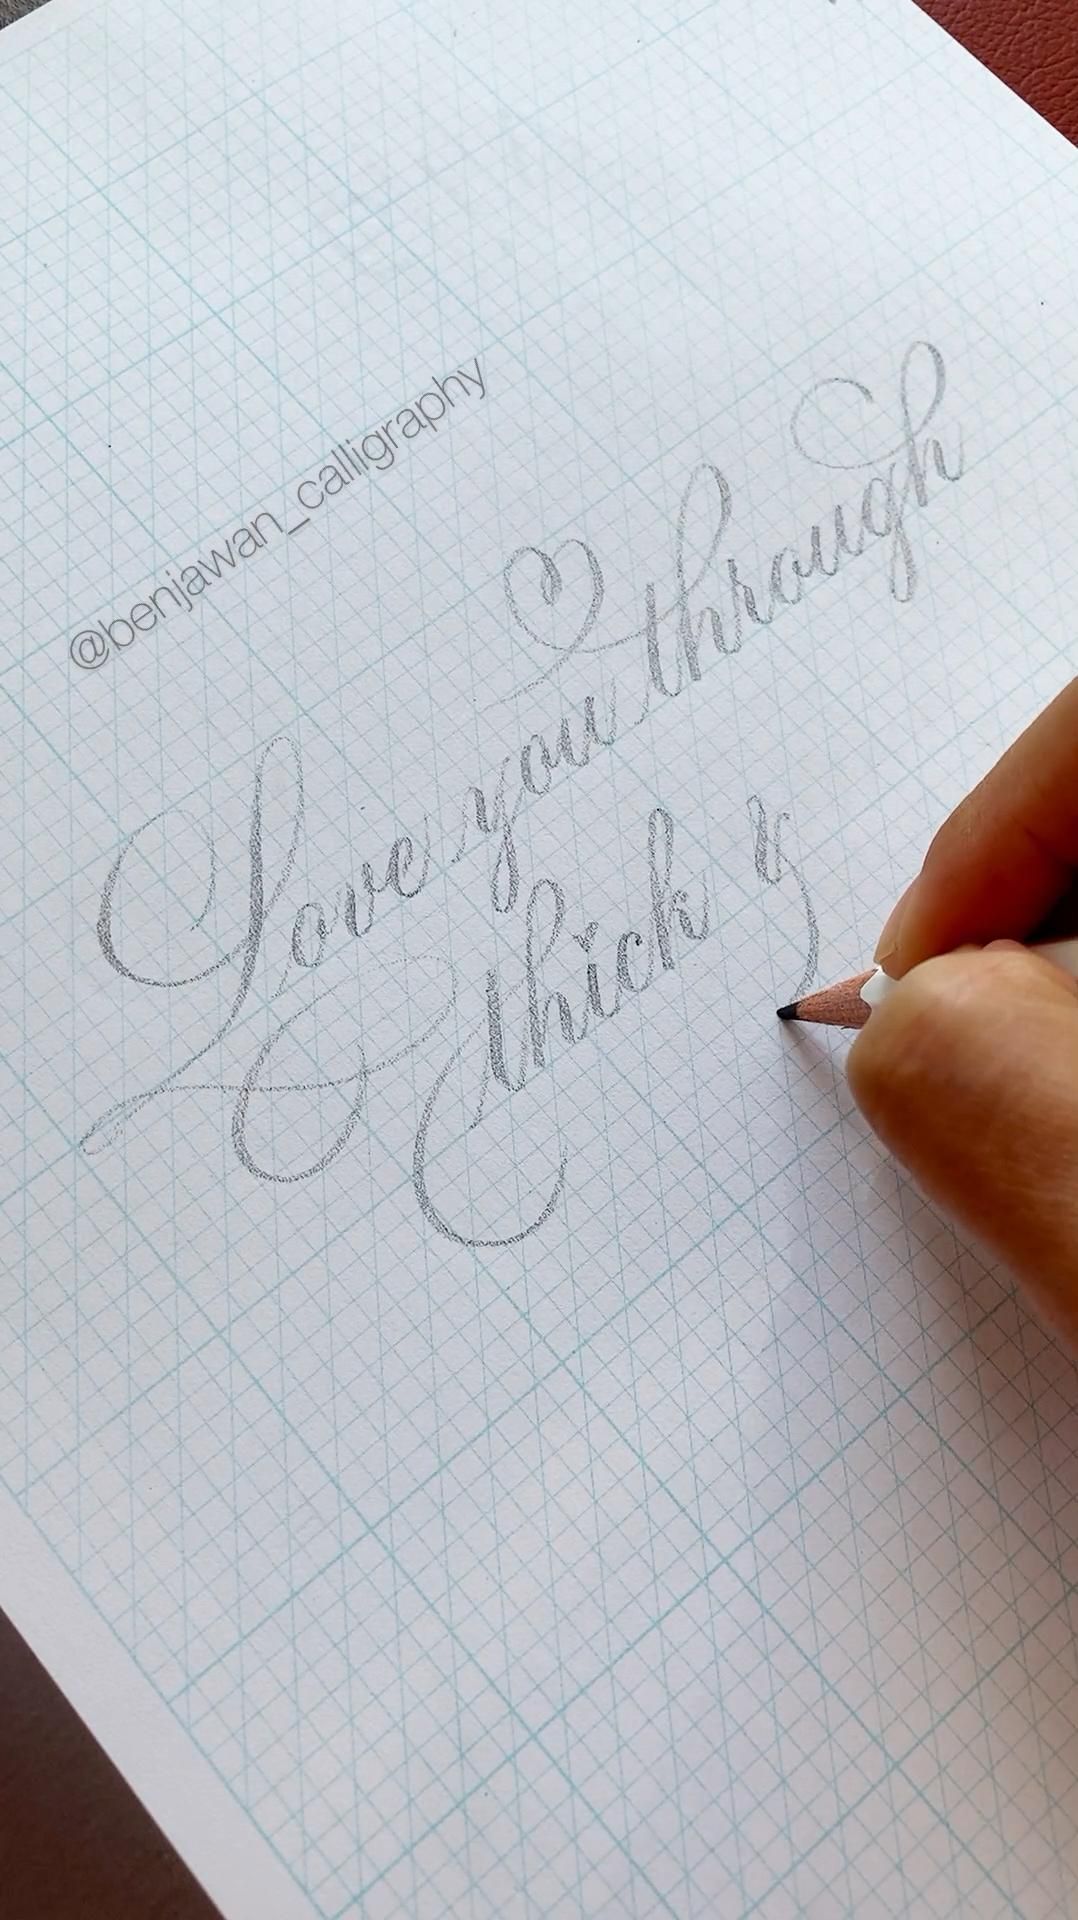 @benjawan_calligraphy
Love you through
thick &